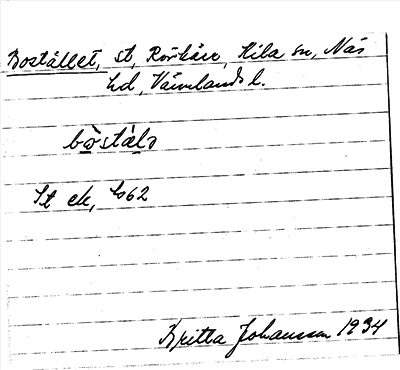 Bostället, st, Rörkärr, Kila sn, Näs
hd, Värmlands l.
bo̱stälə
St ek, Js62
Britta Johansson 1934